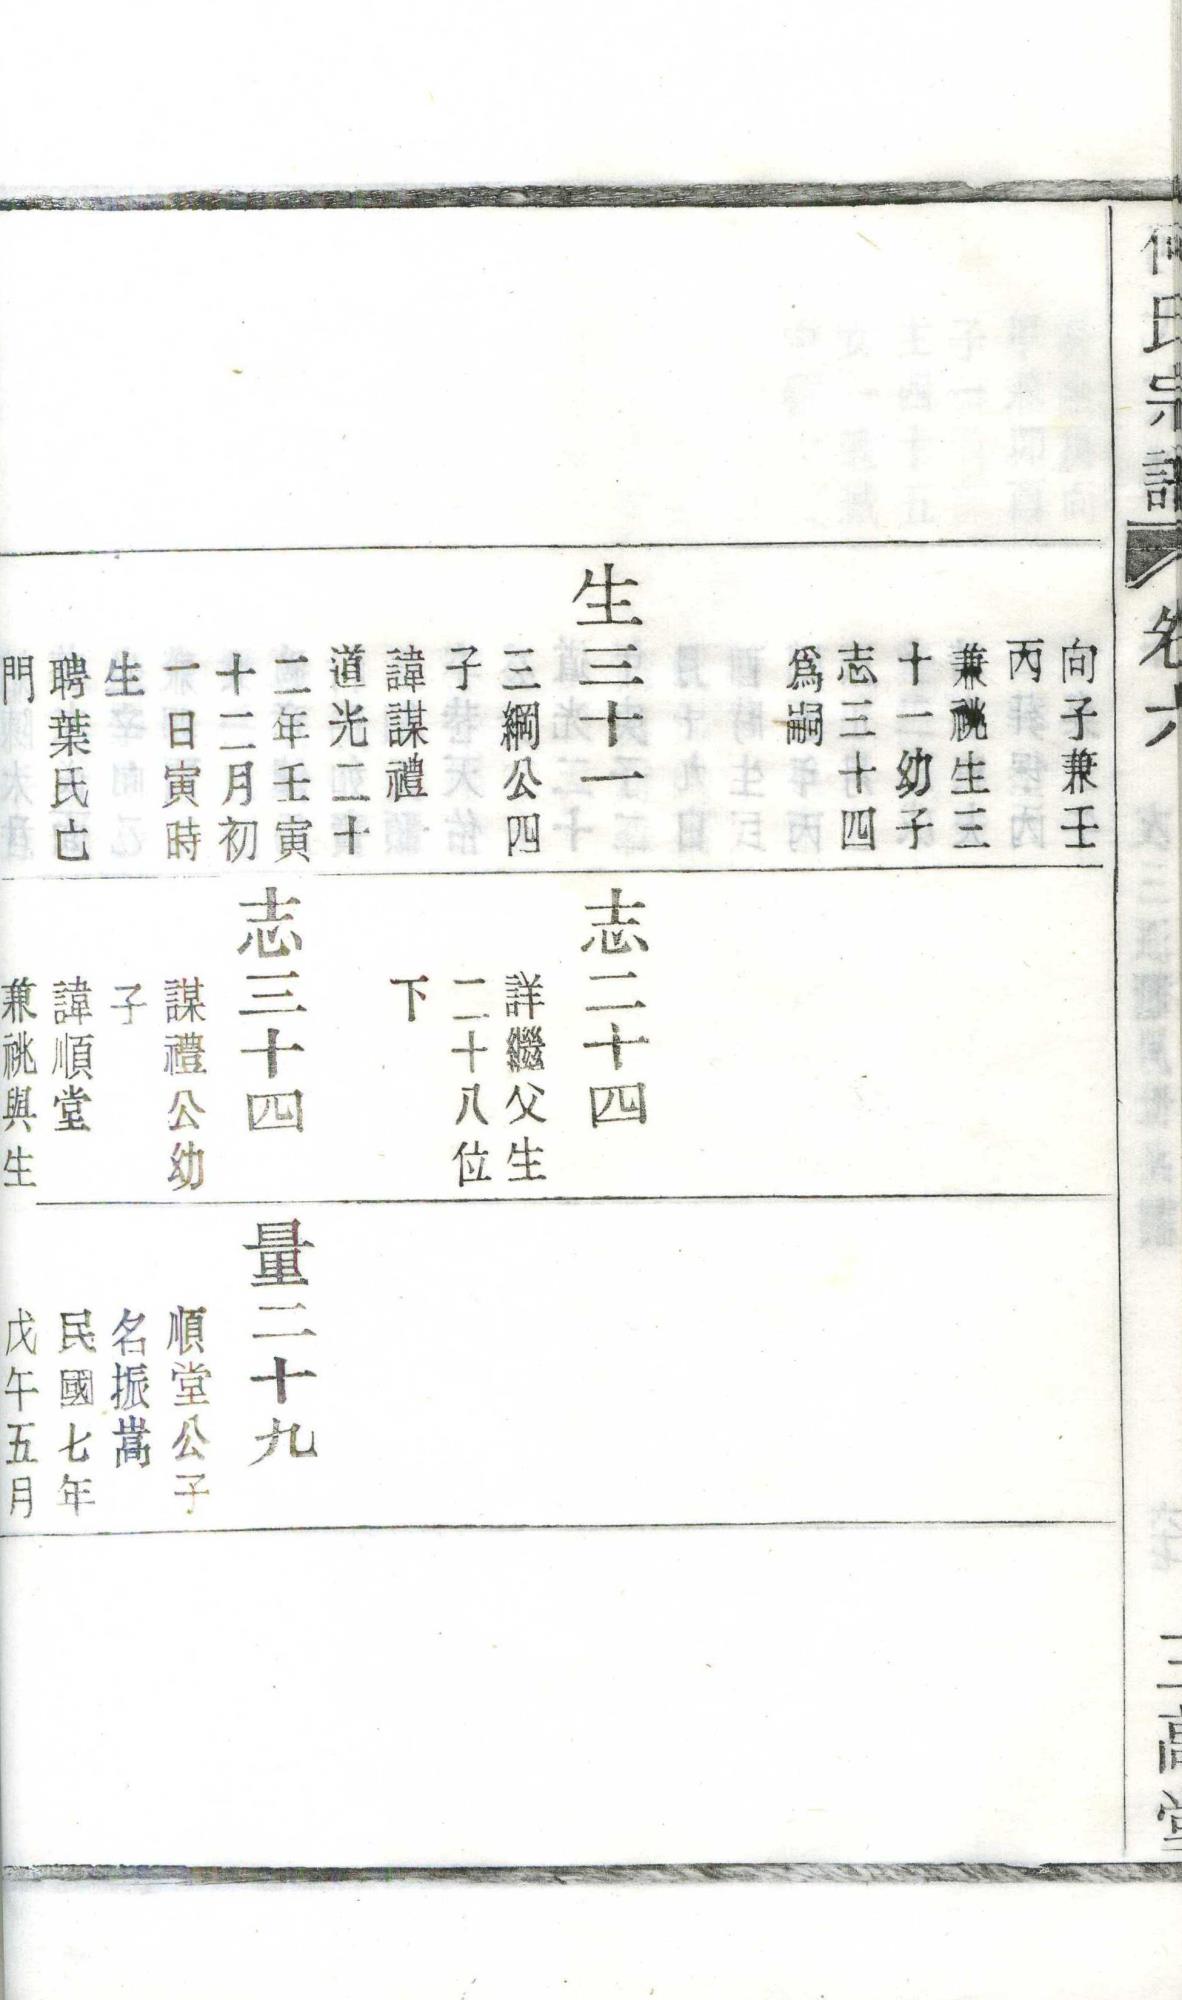 何氏宗譜
卷六
三高堂
向子兼壬
丙
兼祧生三
十二幼子
志三十四
爲嗣
生三十一
三綱公四
子
諱謀禮
道光二十
二年壬寅
十二月初
一日寅時
生
聘葉氏亡
門
志二十四
詳繼父生
二十八位
下
志三十四
謀禮公幼
子
諱順堂
兼祧與生
量二十九
順堂公子
名振嵩
民國七年
戊午五月